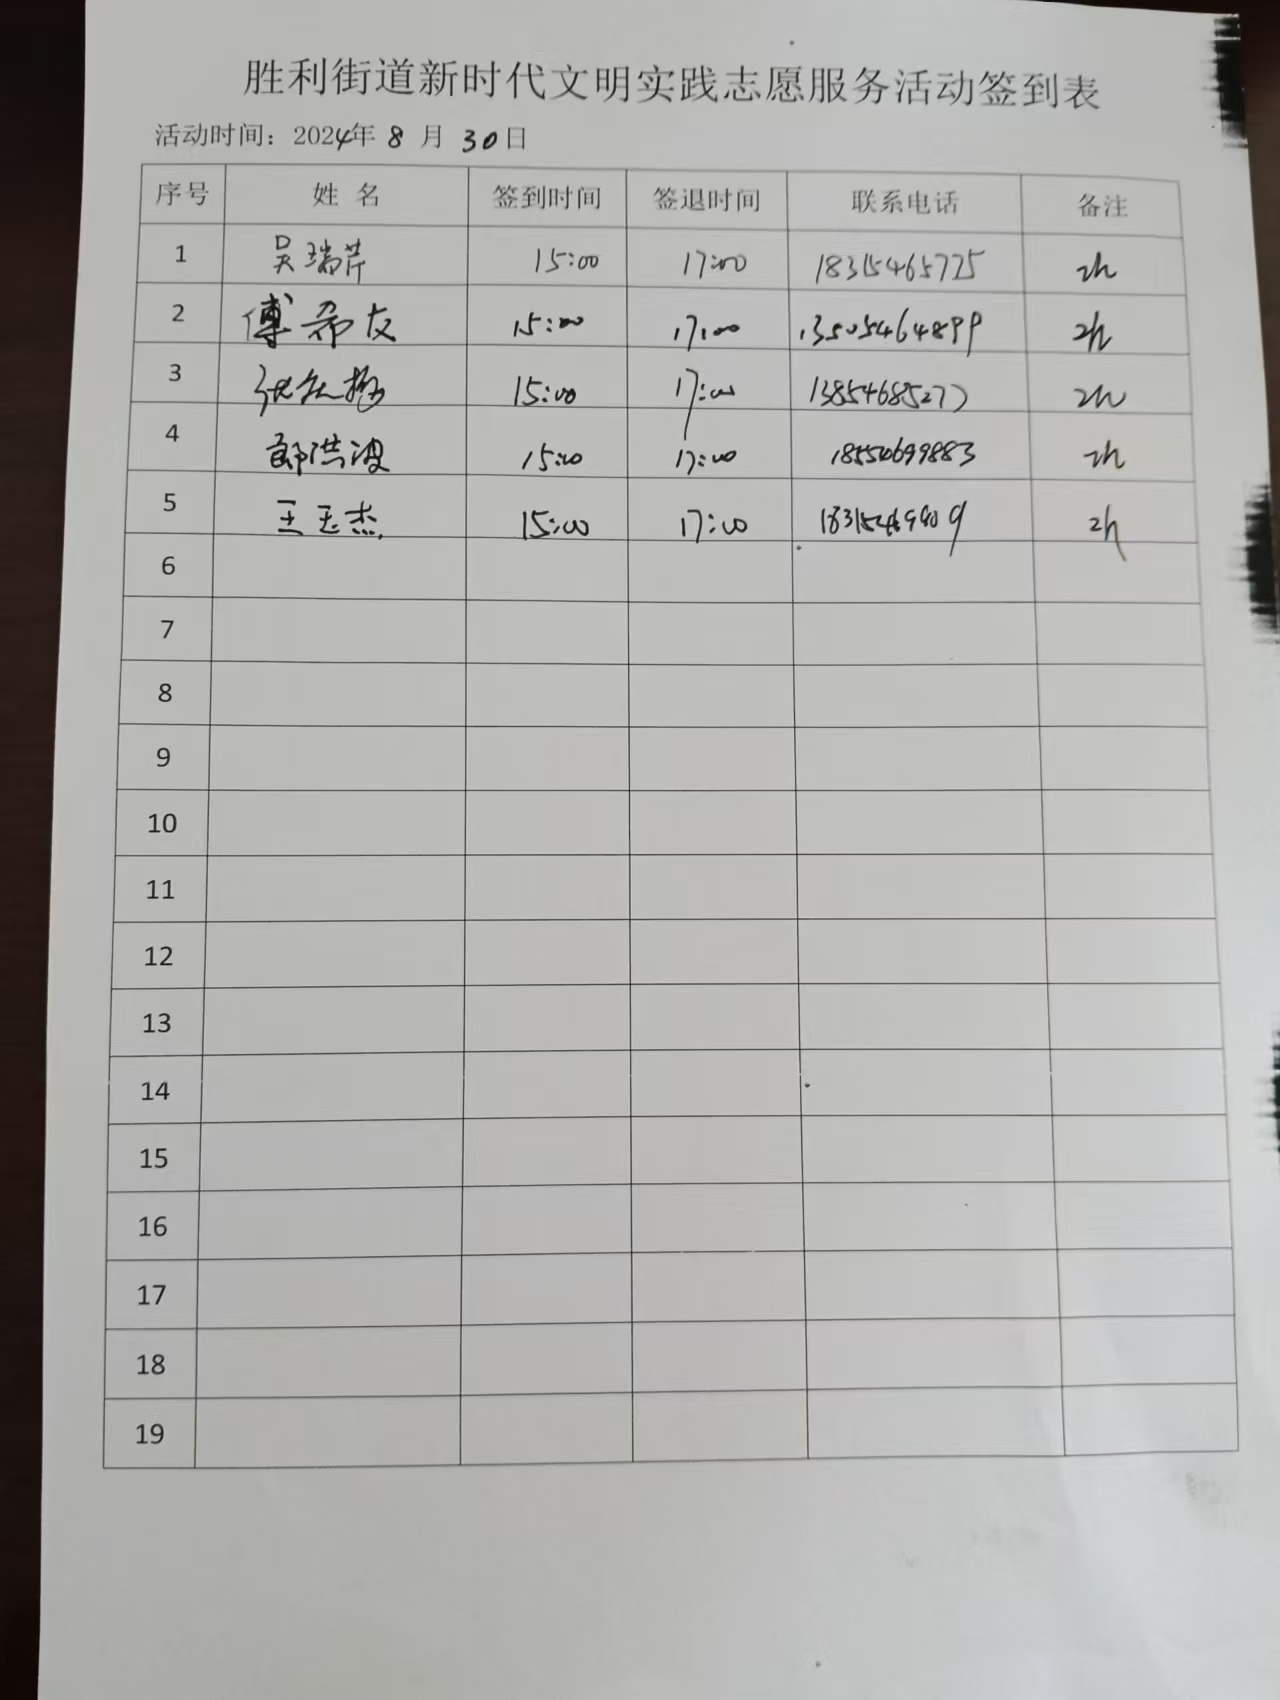 胜利街道新时代文明实践志愿服务活动签到表
活动时间：2024年 8 月 30日
序号 姓 名 签到时间 签退时间 联系电话 备注
1 吴瑞芹 15:00 17:00 18315465725 2h
2 傅希友 15:00 17:00 13505464899 2h
3 15:00 17:00 13854685277 2h
4 郭洪波 15:00 17:00 18554699883 2h
5 王玉杰 15:00 17:00 18315469809 2h
6
7
8
9
10
11
12
13
14
15
16
17
18
19